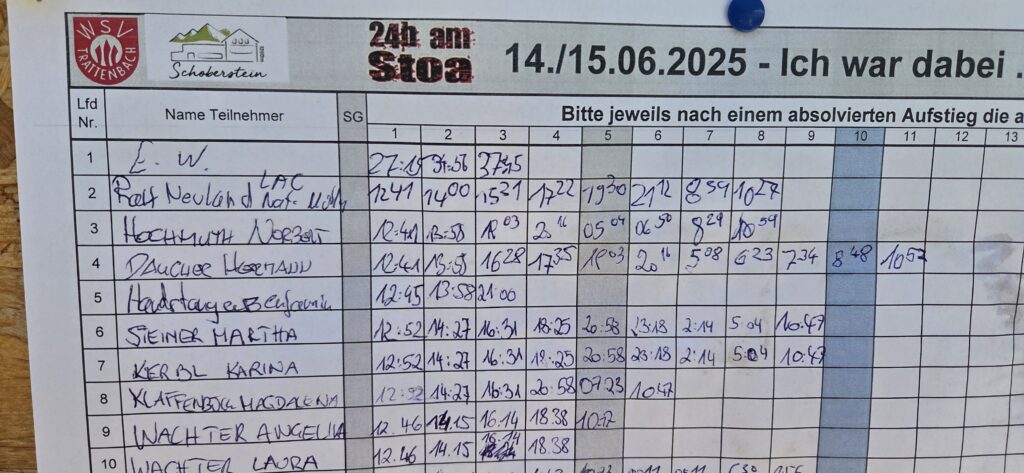 WSV
TRATTENBACH
Schoberstein
24h am
Stoa
14./15.06.2025 - Ich war dabei .
Lfd Nr. Name Teilnehmer SG Bitte jeweils nach einem absolvierten Aufstieg die a
1 2 3 4 5 6 7 8 9 10 11 12 13
1 E. W. 37:45
2 Ralf Neuland LAC Nat. 1241 1400 1521 1722 1930 2112 859 1027
3 HOCHMUTH NORBERT 12:41 13:58 18 03 20 16 05 04 06 50 8 29 10 59
4 DAUCHER HERMANN 12:41 13:58 16 28 17 35 19 03 20 16 5 08 6 23 7 34 8 48 10 57
5 12:45 13:58 21:00
6 STEINER MARTHA 12:52 14:27 16:31 18:25 20:58 23:18 2:14 5:04 10:47
7 KERBL KARINA 12:52 14:27 16:31 18:25 20:58 23:18 2:14 5:04 10:47
8 MAGDALENA 12:52 14:27 16:31 20:58 07:23 10:47
9 WACHTER ANGELIKA 12.46 14.15 16.14 18.38 10:17
10 WACHTER LAURA 12.46 14.15 16.14 18.38